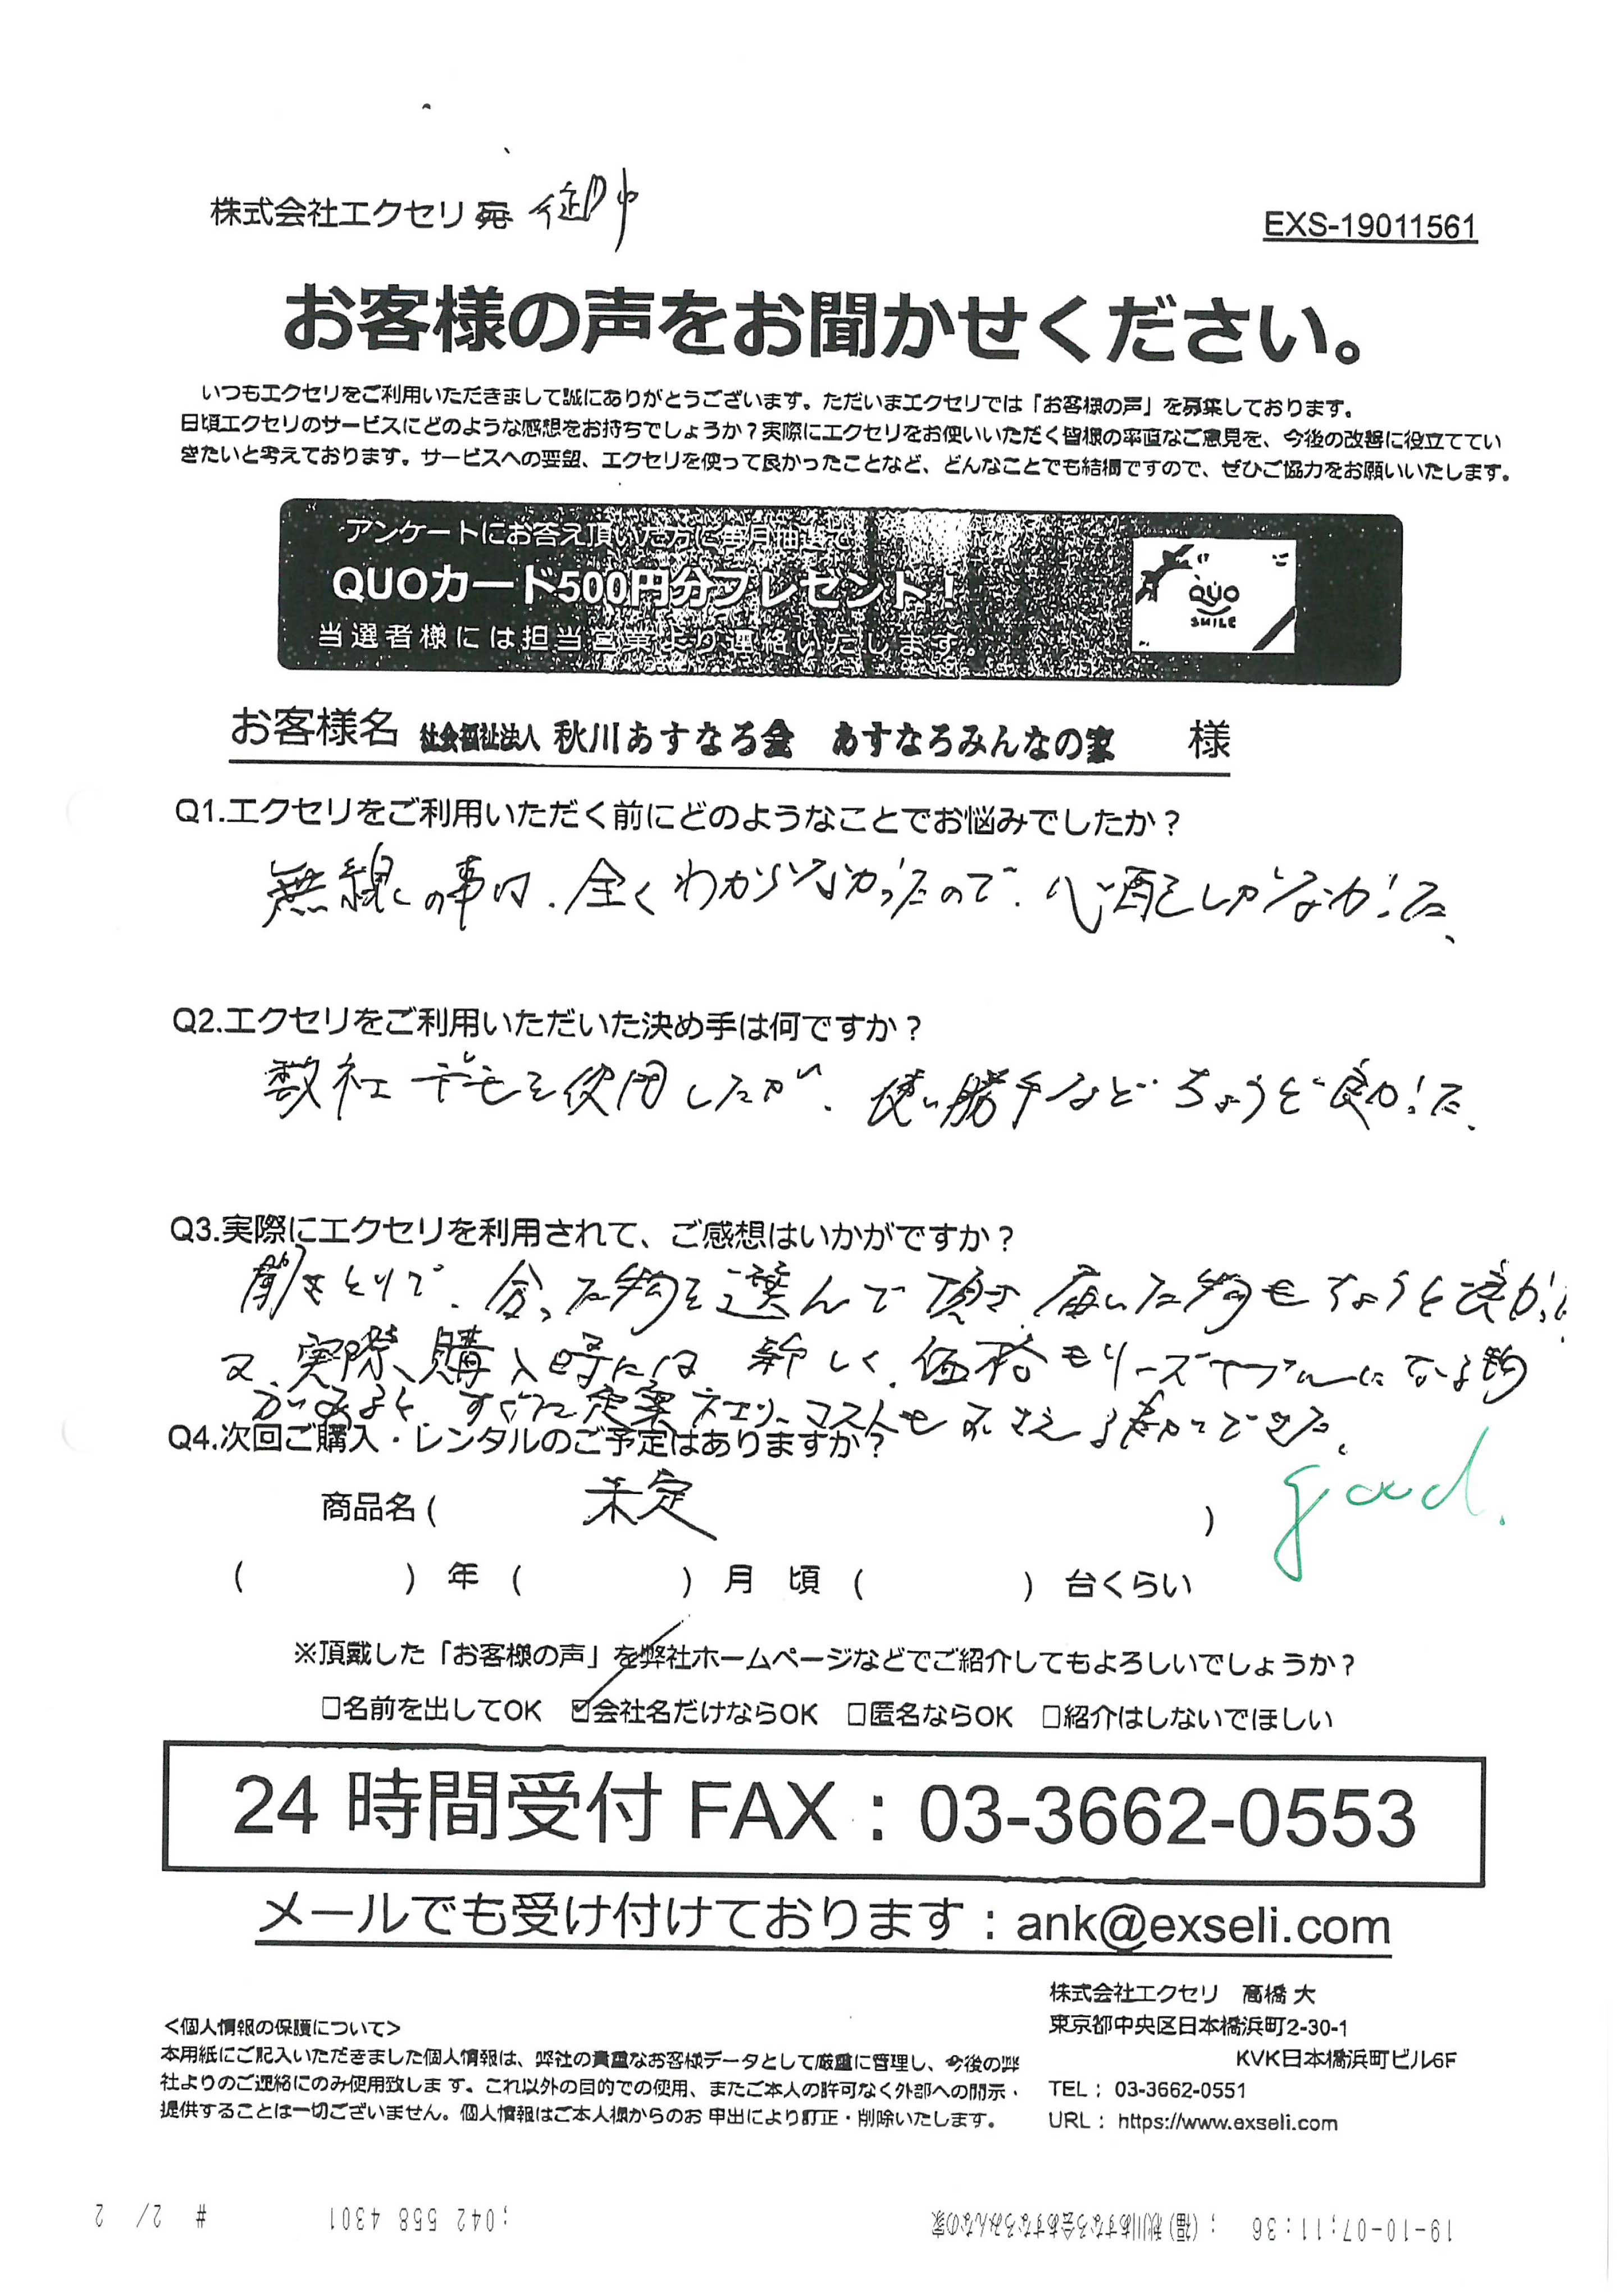 株式会社エクセリ 宛 御中
EXS-19011561
お客様の声をお聞かせください。
いつもエクセリをご利用いただきまして誠にありがとうございます。ただいまエクセリでは「お客様の声」を募集しております。
日頃エクセリのサービスにどのような感想をお持ちでしょうか？実際にエクセリをお使いいただく皆様の率直なご意見を、今後の改善に役立ててい
きたいと考えております。サービスへの要望、エクセリを使って良かったことなど、どんなことでも結構ですので、ぜひご協力をお願いいたします。
アンケートにお答え頂いた方に毎月抽選で
QUOカード500円分プレゼント！
QUO
SMILE
当選者様には担当営業より連絡いたします。
お客様名 社会福祉法人 秋川あすなろ会 あすなろみんなの家 様
Q1.エクセリをご利用いただく前にどのようなことでお悩みでしたか？
無線の事は、全くわからなかったので、心配しかなかった、
Q2.エクセリをご利用いただいた決め手は何ですか？
数社デモを使用したが、使い勝手などちょうど良かった、
Q3.実際にエクセリを利用されて、ご感想はいかがですか？
聞きとりで、合った物を選んで頂き、届いた物もちょうど良かった
又、実際、購入時には 新しく、価格もリーズナブルになる物
があるよと すぐに定案 コストもおさえる事ができた。
Q4.次回ご購入・レンタルのご予定はありますか？
商品名( 未定 )
good.
( ) 年 ( ) 月 頃 ( ) 台くらい
※頂戴した「お客様の声」を弊社ホームページなどでご紹介してもよろしいでしょうか？
□名前を出してOK ☑会社名だけならOK □匿名ならOK □紹介はしないでほしい
24 時間受付 FAX：03-3662-0553
メールでも受け付けております：ank@exseli.com
<個人情報の保護について>
本用紙にご記入いただきました個人情報は、弊社の貴重なお客様データとして厳重に管理し、今後の弊
社よりのご連絡にのみ使用致します。これ以外の目的での使用、またご本人の許可なく外部への開示・
提供することは一切ございません。個人情報はご本人様からのお申出により訂正・削除いたします。
株式会社エクセリ 高橋 大
東京都中央区日本橋浜町2-30-1
KVK日本橋浜町ビル6F
TEL： 03-3662-0551
URL： https://www.exseli.com
19-10-07;11:36 ;(福)秋川あすなろ会あすなろみんなの家 ;042 558 4301 # 2/ 2